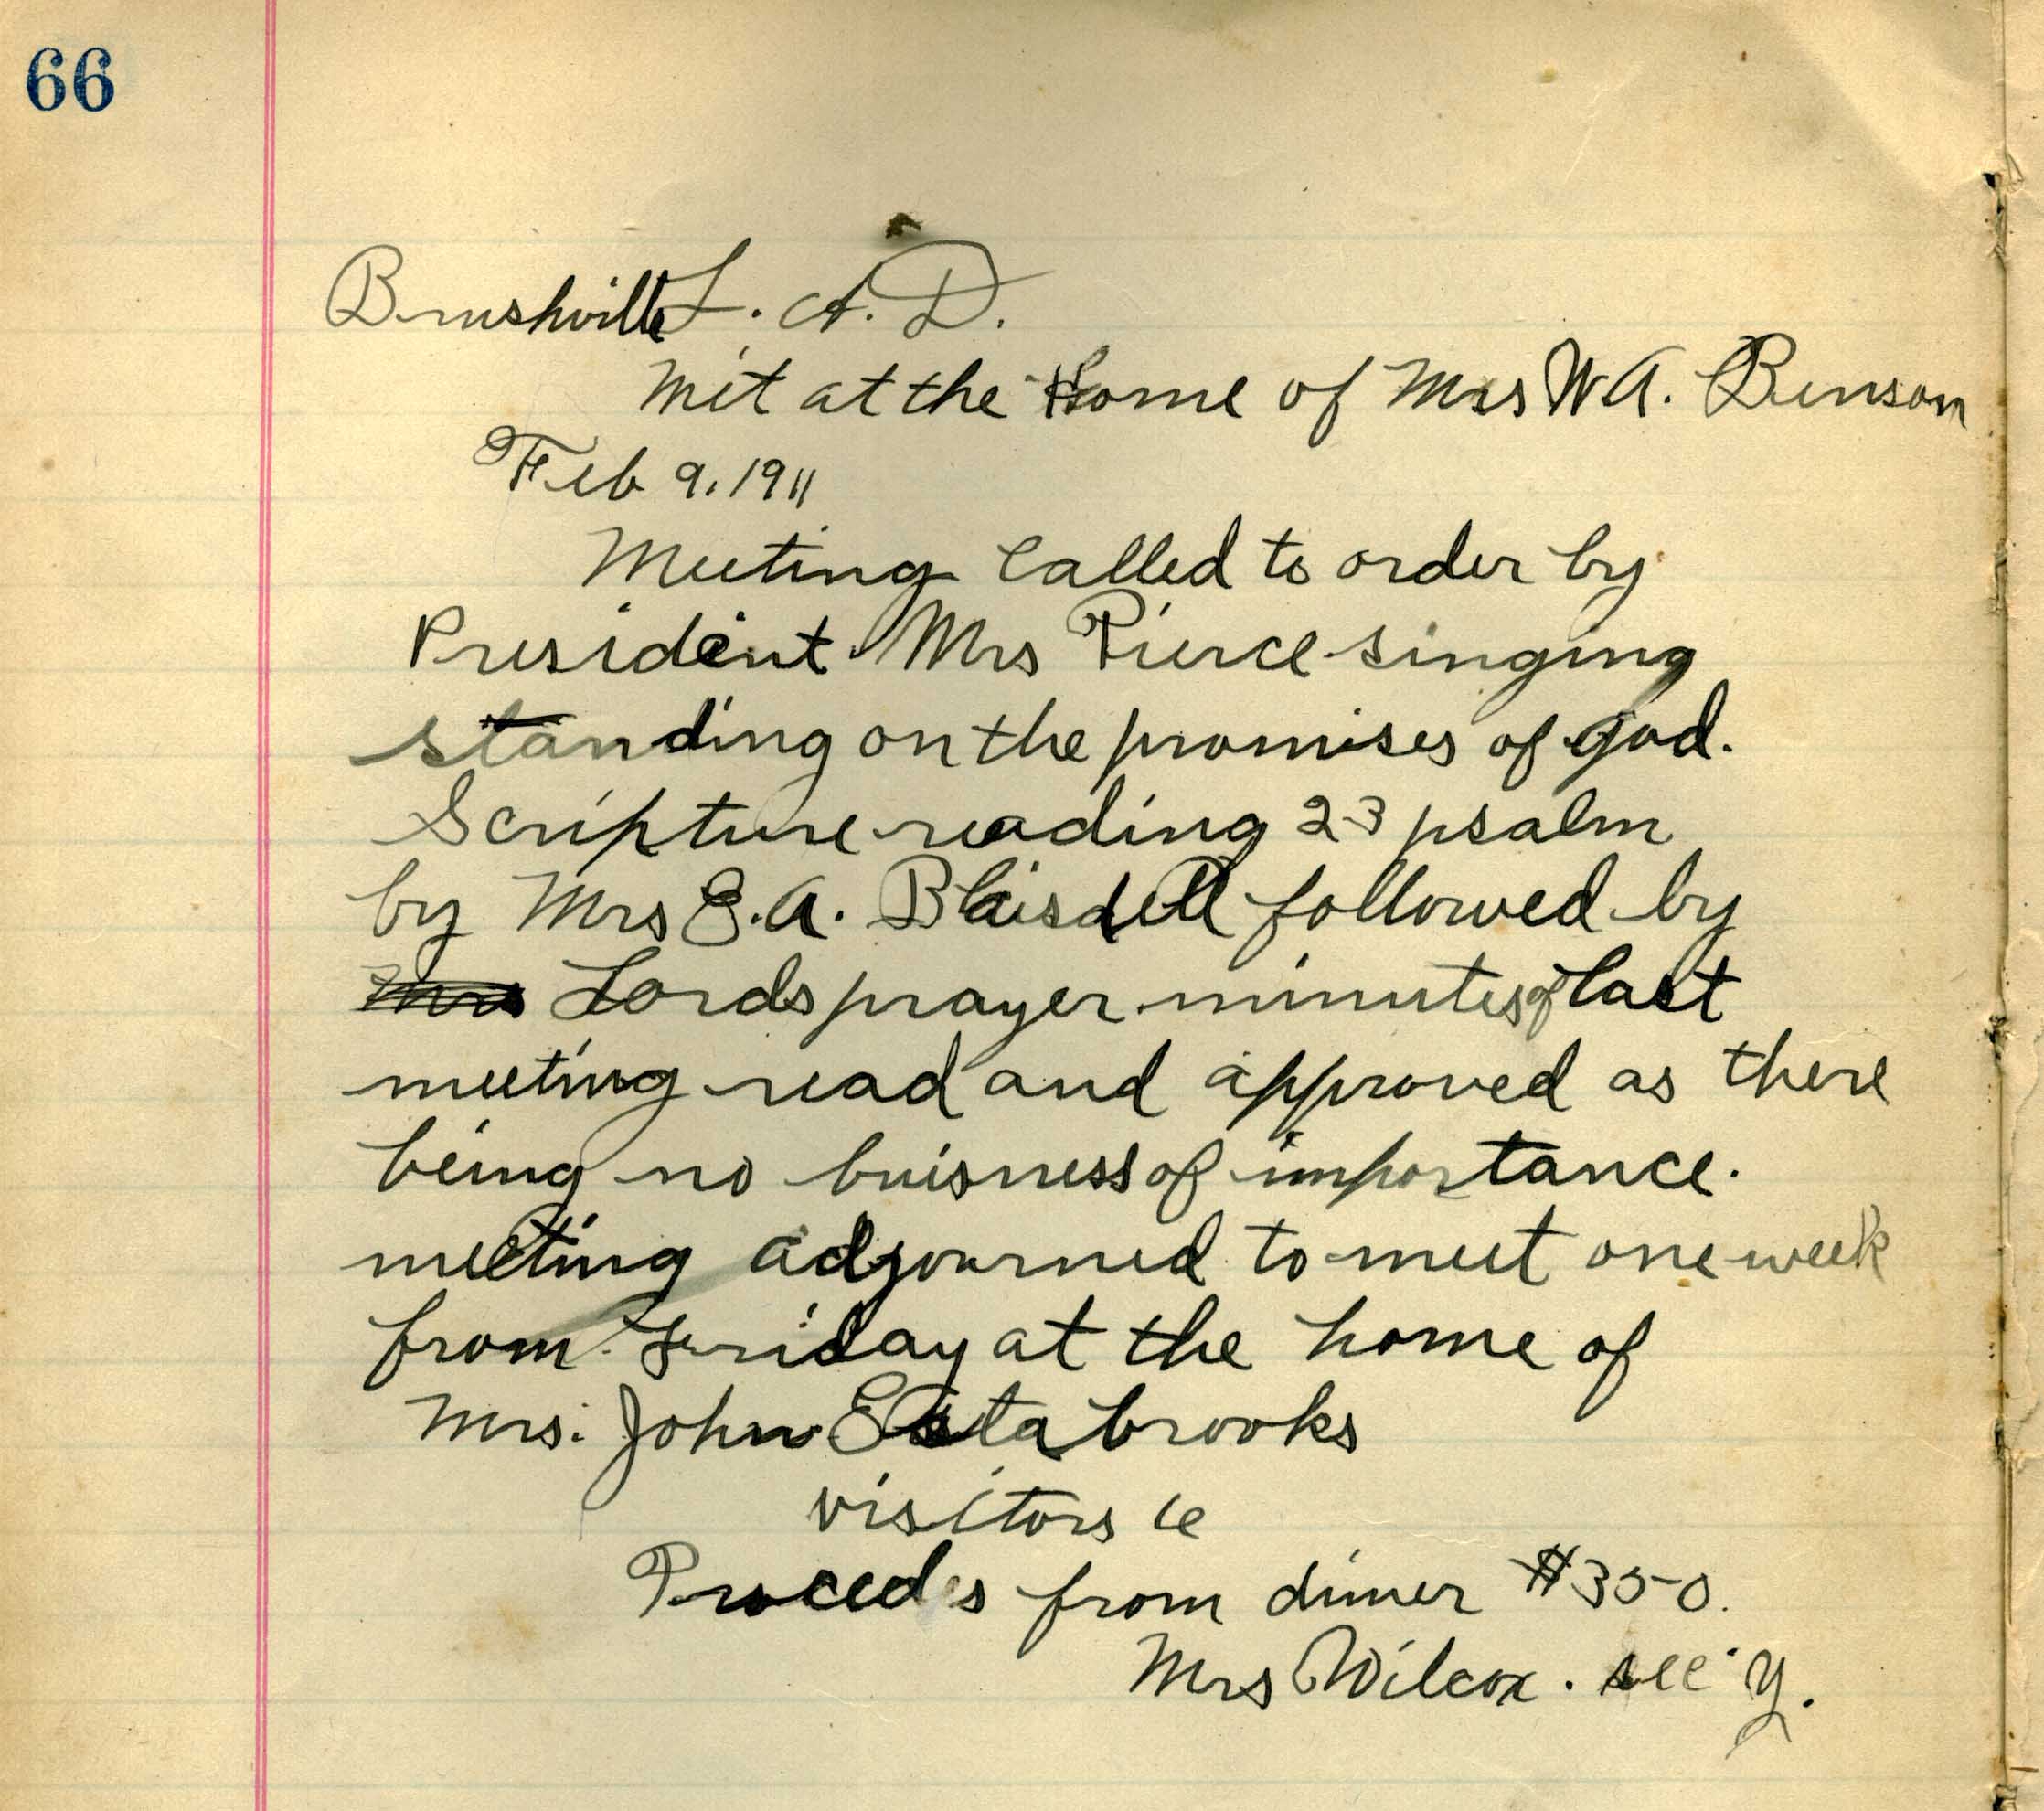 66
Brushville L. A. D.
Met at the Home of Mrs W A. Benson
Feb 9, 1911
Meeting Called to order by
President Mrs Pierce singing
standing on the promises of god.
Scripture reading 23 psalm
by Mrs E. A. Blaisdell followed by
Mrs Lords prayer minutes of last
meeting read and approved as there
being no buisness of importance.
meeting adjourned to meet one week
from Friday at the home of
Mrs. John Estabrooks
visitors
Proceeds from dinner $350.
Mrs Wilcox. sec'y.